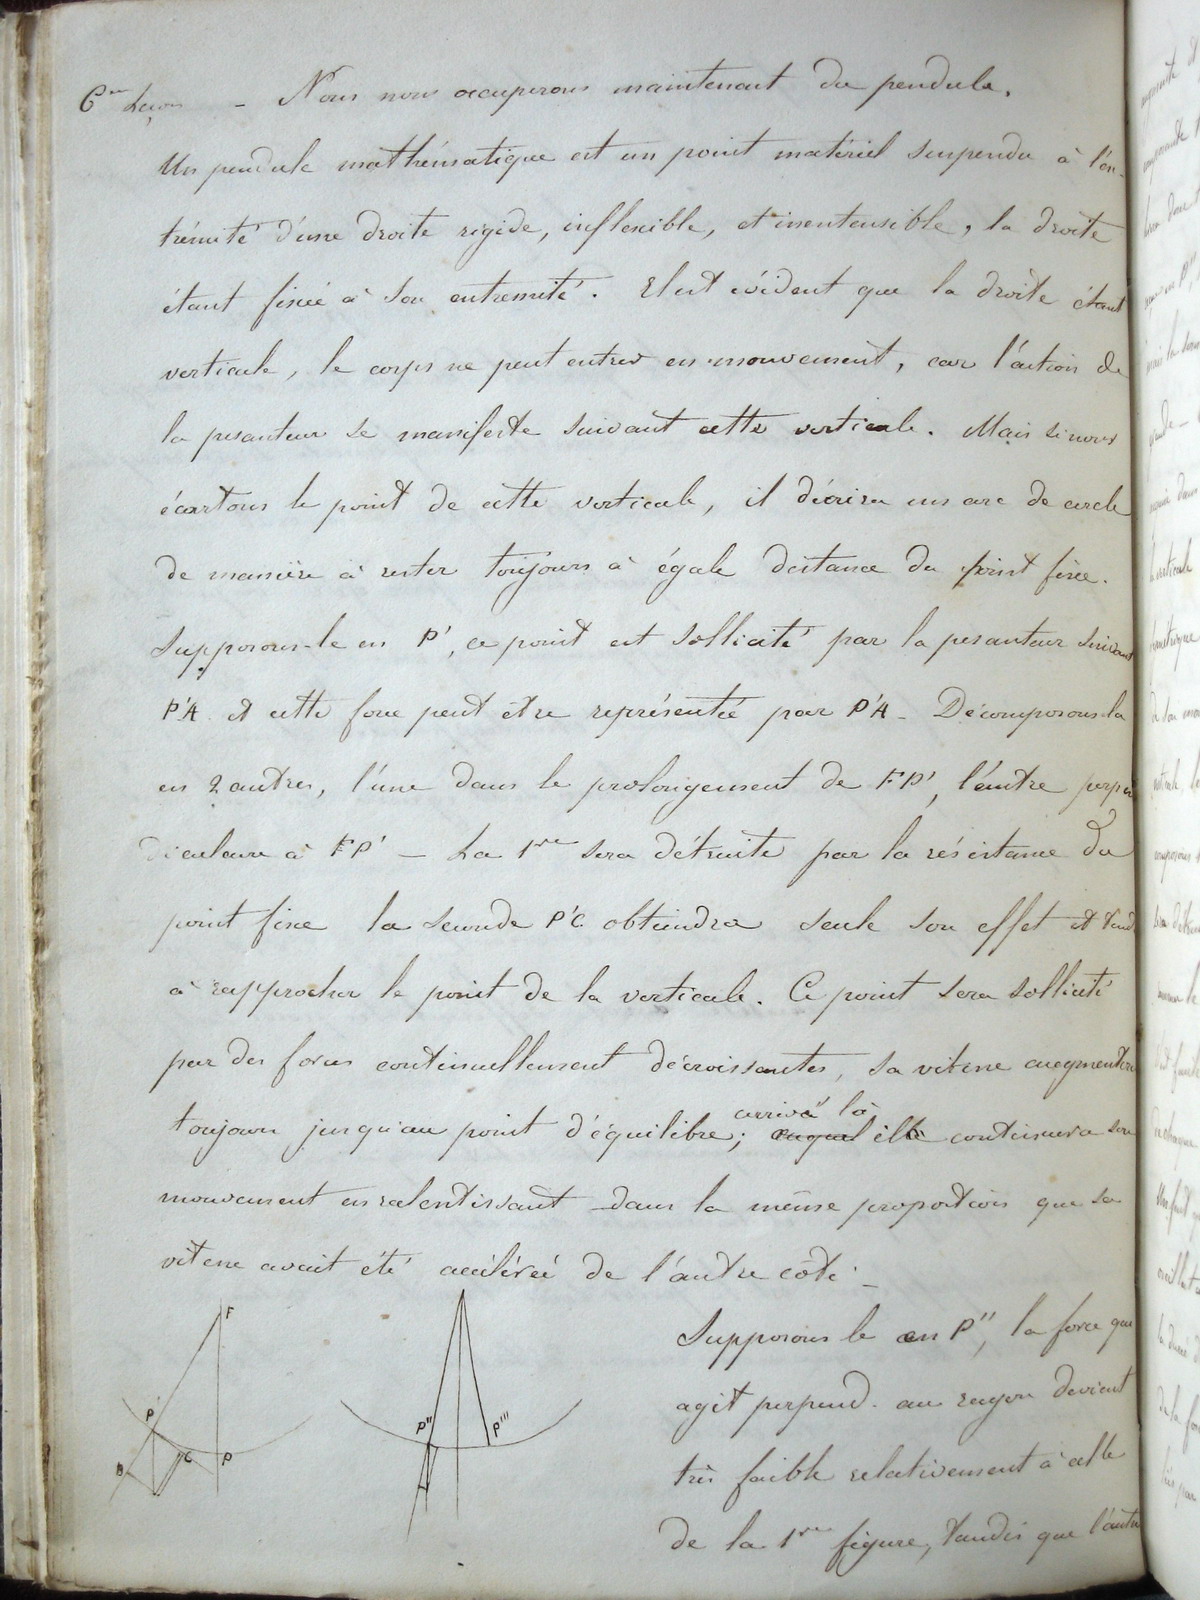 6me Leçon - Nous nous occuperons maintenant du pendule.
Un pendule mathématique est un point matériel suspendu à l'ex-
trémité d'une droite rigide, inflexible, et inextensible, la droite
étant fixée à son extremité. Il est évident que la droite étant
verticale, le corps ne peut entrer en mouvement, car l'action de
la pesanteur se manifeste suivant cette verticale. Mais si nous
écartons le point de cette verticale, il décrira un arc de cercle
de manière à rester toujours à égale distance du point fixe.
Supposons-le en P', ce point est sollicité par la pesanteur suivant
P'A et cette force peut être représentée par P'A - Décomposons-la
en 2 autres, l'une dans le prolongement de FP', l'autre perpen
diculaire à FP' - La 1re sera détruite par la résistance du
point fixe la seconde P'C obtiendra seule son effet et tend
à rapprocher le point de la verticale. Ce point sera sollicité
par des forces continuellement décroissantes, sa vitesse augmentera
arrivé là
toujours jusqu'au point d'équilibre; auquel elle continuera son
mouvement en ralentissant dans la même proportion que sa
vitesse avait été accélérée de l'autre côté -
Supposons le en P'', la force qui
agit perpend. au rayon devient
très faible relativement à celle
de la 1re figure, tandis que l'autre
F
P'
B
C
P
P''
P'''